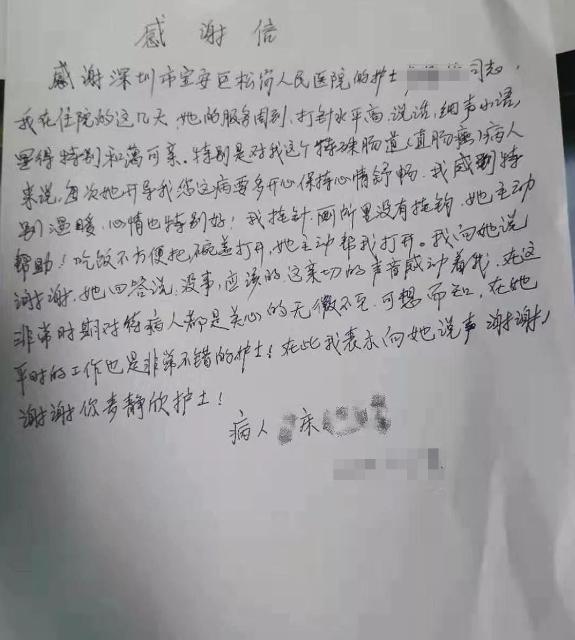 感谢信
感谢深圳市宝安区松岗人民医院的护士 同志,
我在住院的这几天,她的服务周到,打针水平高,说话,细声小语,
显得特别和蔼可亲。特别是对我这个特殊肠道(直肠癌)病人
来说,每次她开导我您这病要多开心保持心情舒畅。我感到特
别温暖,心情也特别好!我挂针,厕所里没有挂钩,她主动
帮助!吃饭不方便把碗盖打开,她主动帮我打开。我向她说
谢谢,她回答说,没事,应该的,这亲切的声音感动着我,在这
非常时期对待病人都是关心的无微不至,可想而知,在她
平时的工作也是非常不错的护士!在此我表示向她说声谢谢!
谢谢你 静欣护士!
病人 床